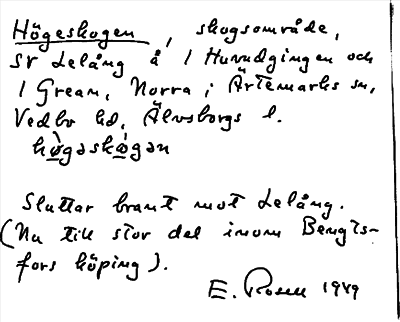 Högeskogen, skogsområde,
SV Lelång å 1 Huvudgingen och
1 Grean, Norra i Ärtemarks sn,
Vedbo hd, Älvsborgs l.
hø̀gəskò̤gən
Sluttar brant mot Lelång.
(Nu till stor del inom Bengts-
fors köping).
E. Rosell 1949